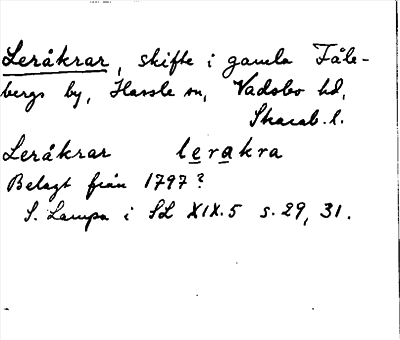 Leråkrar, skifte i gamla Fåle-
bergs by, Hassle sn, Vadsbo hd,
Skarab. l.
Leråkrar lerakra
Belagt från 1797?
S. Lampa i SL XIX.5 s. 29, 31.